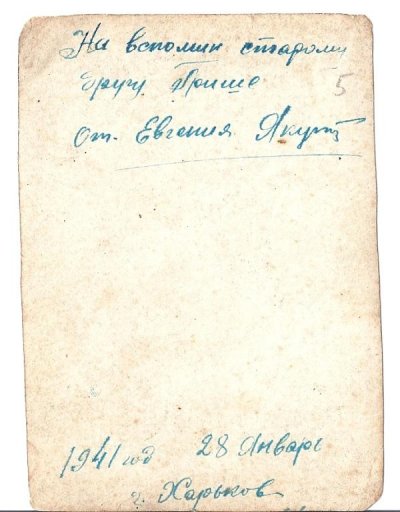 На вспомин старому
другу Грише
5
от Евгения Якут
1941 год 28 Январь
г. Харьков